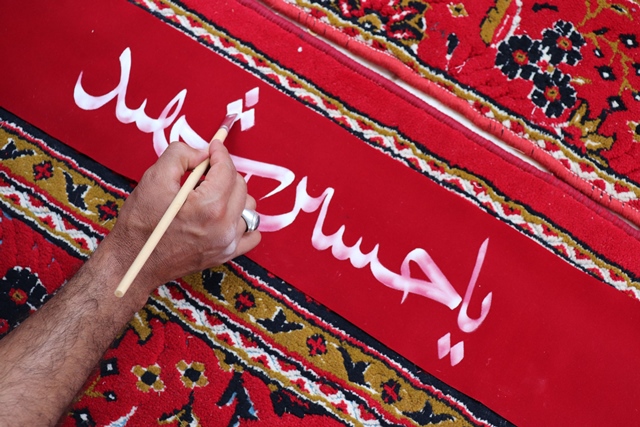 یا حسین شهید